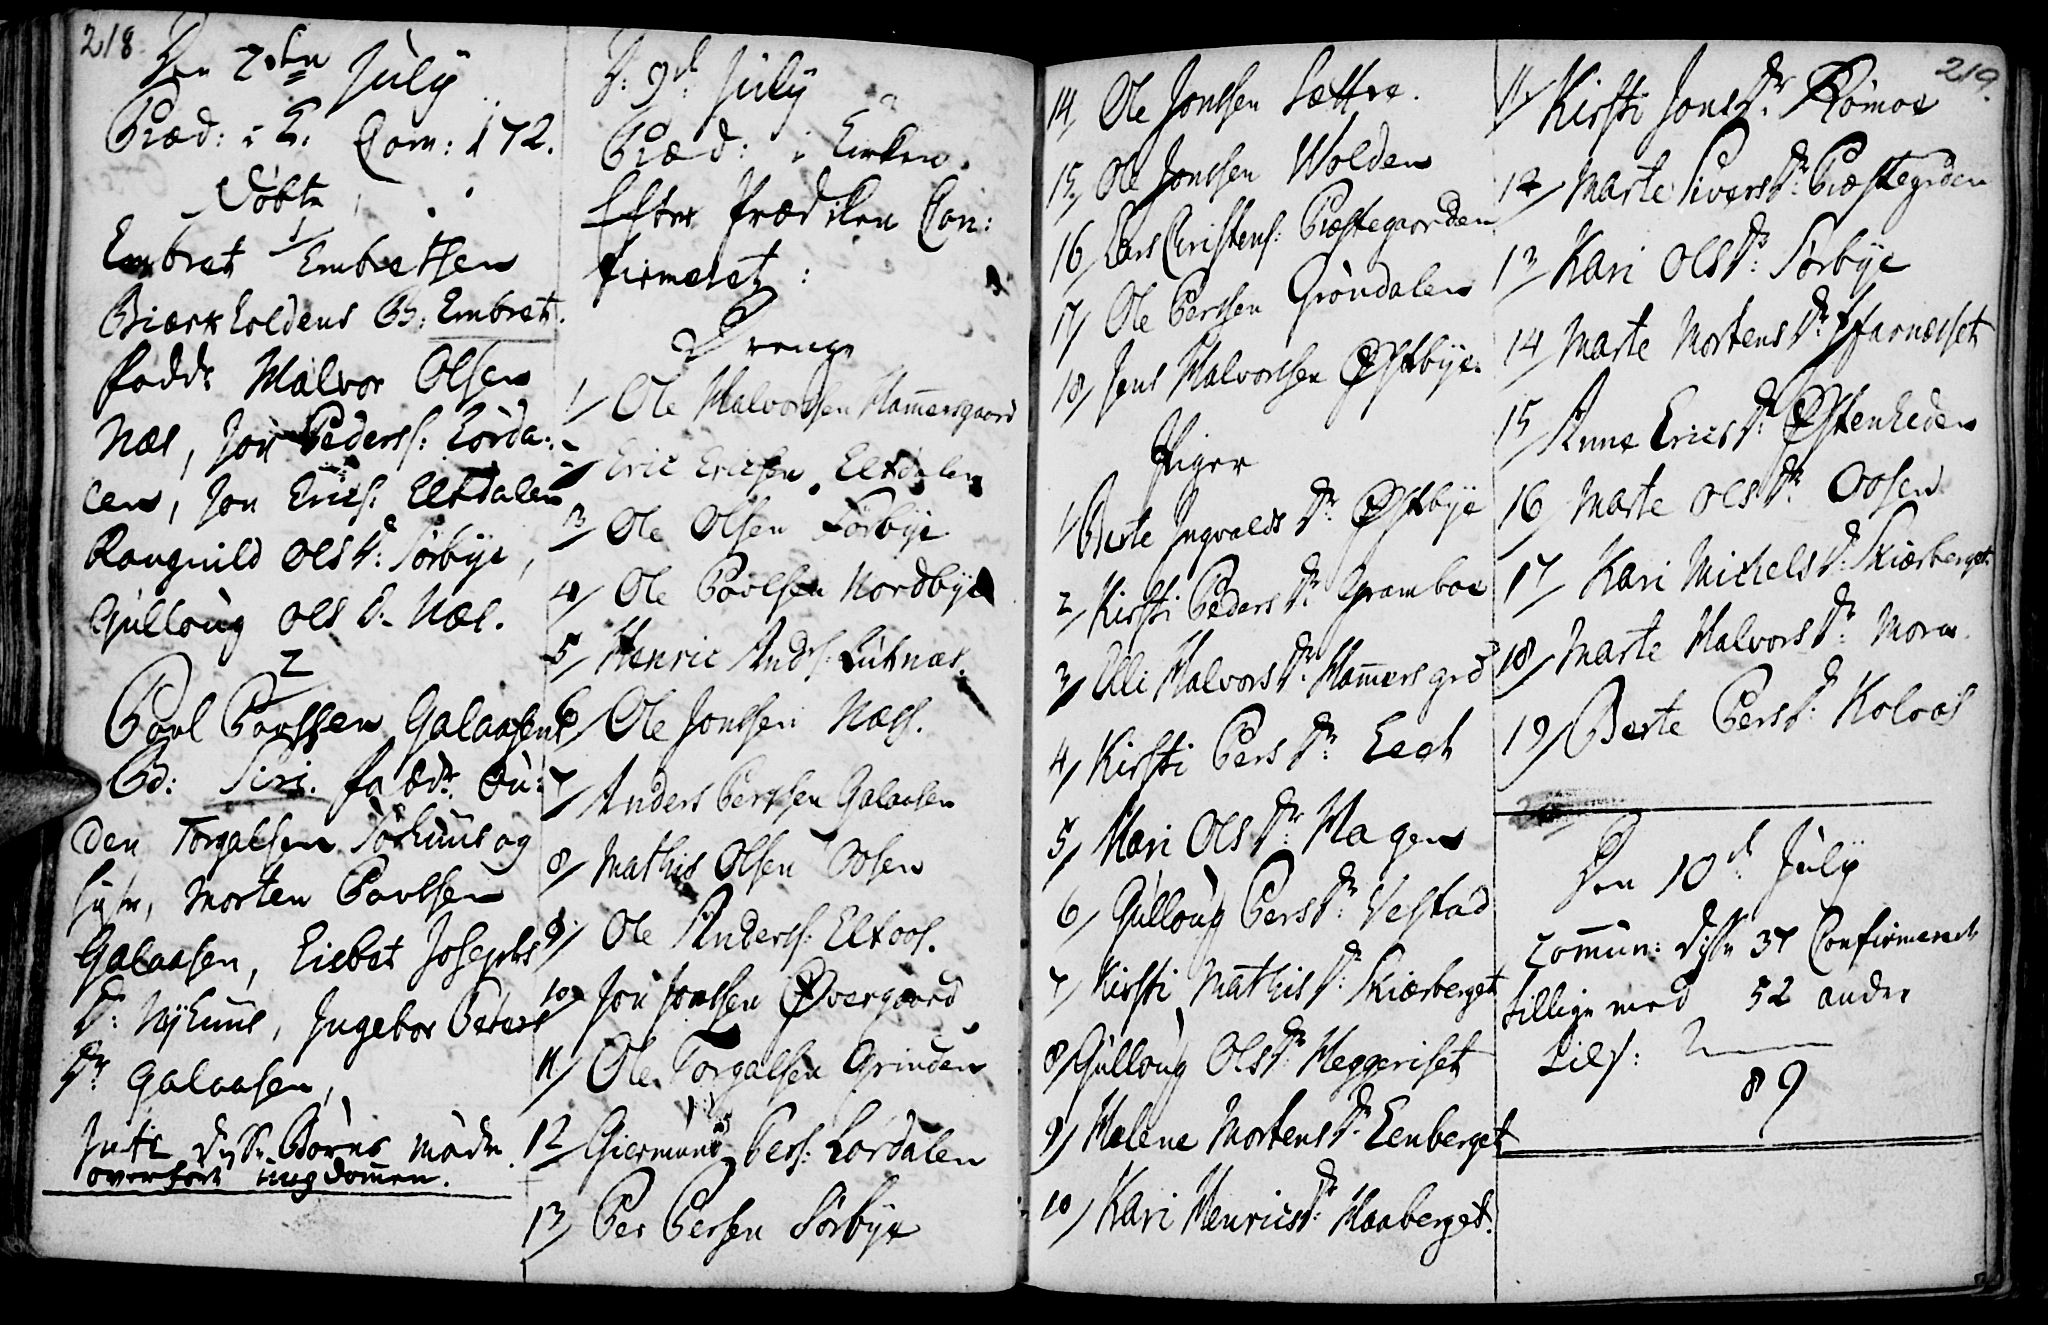 218.
Den 2den July
Præd: i E. Com: 172.
Døbte
1/
Embret Embretsen
Biærkholdens B: Embret.
fadd: Halvor Olsen
Næs, Jon Peders: Lörda-
len, Jon Erics: Eltdalen
Rangnild Ols D: Sörbye,
Gulloug Ols D. Næs.
2
Povl Povlsen Galaasens
B: Siri. fadd: Au-
den Torgalsen Sörhuus og
Morten Povlsen
Galaasen, Lisbet Josephs
D: Nyhuus, Ingebor Peters
Dr Galaasen,
disse Börns mödre
D: 9de July
Præd: i Kirken.
Efter Prædiken Con:
firmeret:
Drenge
1/ Ole Halvorsen Hamersgaard
2/ Eric Ericsen Eltdalen
3/ Ole Olsen Sörbye
4/ Ole Povlsen Nordbye
5/ Henric And: Lutnæs.
6/ Ole Jonssen Næss.
7/ Anders Perssen Galaasen
8/ Mathis Olsen Oosen
9/ Ole Anderss: Eltoos.
10/ Jon Jonssen Øvergaard
11/ Ole Torgalsen Grinden
12/ Giermund Pers: Lördalen
13/ Per Persen Sörbye
219.
14/ Ole Jonssen Sættre.
15/ Ole Jonssen Wolden
16/ Lars Christens: Præstegaarden
17/ Ole Perssen Gröndalen
18/ Jens Halvorsen Østbye.
Piger
1/ Berte Ingvalds Dr: Østbye
2/ Kirsti Peders Dr: Gramboe
3/ Olli Halvors Dr: Hamersgrd
4/ Kirsti Pers Dr: Eegt
5/ Mari Ols Dr: Hagen
6/ Gulloug Pers Dr: Vestad
7/ Kirsti Mathis Dr: Skiærberget
8/ Gulloug Ols Dr: Heggeriset
9/ Helene Mortens Dr: Eenberget
10/ Kari Henrics Dr: Haaberget.
11/ Kirsti Jons Dr: Römoe
12/ Marte Sivers Dr: Præstegrden
13/ Kari Ols Dr: Sörbye
14/ Marte Mortens Dr: Jfarnæsset
15/ Anne Erics Dr: Østenheden
16/ Marte Ols Dr: Oosen
17/ Kari Michels Dr: Skiærberget
18/ Marte Halvors Dr: Moren
19/ Berte Pers Dr: Koloos
Den 10de July
Commun: disse 37 Confirmerede
tillige med 52 andre
Tils:
89